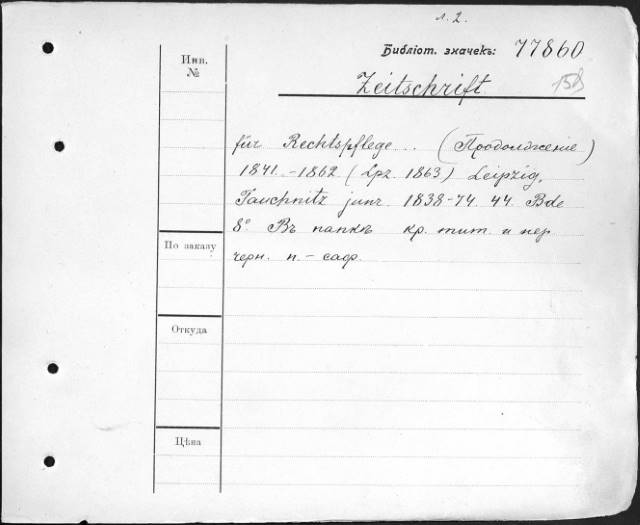 л. 2.
Библіот. значекъ: 77860
Zeitschrift
Инв.
№
für Rechtspflege... (Продолженіе)
1841.-1862 (Lpz. 1863) Leipzig,
Tauchnitz junr. 1838-74. 44. Bde
8° Въ папкѣ кр. тит. и пер
черн. п.- саф.
По заказу
Откуда
Цѣна